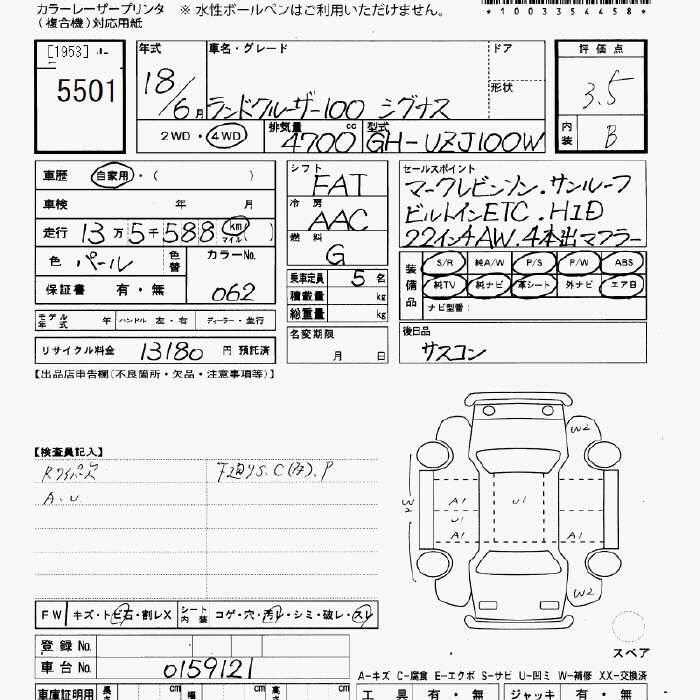 カラーレーザープリンタ
(複合機)対応用紙
※ 水性ボールペンはご利用いただけません。
*1003544458*
[1953]
5501
年式
18/6月
車名・グレード
ランドクルーザー100 シグナス
ドア
形状
評価点
3.5
内装
B
2WD・4WD
排気量
4700 cc
型式
GH-UZJ100W
車歴
自家用・( )
車検 年 月
走行 13万5千588 km マイル( )
色
パール
色替
カラーNo.
062
保証書 有・無
シフト
FAT
冷房
AAC
燃料
G
乗車定員 5 名
積載量 kg
総重量 kg
セールスポイント
マークレビンソン.サンルーフ
ビルトインETC.H1D
22インチAW.4本出マフラー
装備品
S/R 純A/W P/S P/W ABS
純TV 純ナビ 革シート 外ナビ エアB
ナビ型番:
モデル年式 年 ハンドル 左・右 ディーラー・並行
リサイクル料金 13180 円 預託済
名変期限
月 日
後日品
サスコン
【出品店申告欄(不良箇所・欠品・注意事項等)】
【検査員記入】
A.U
W2
W3
A1
U1
A1
U1
A1
A1
W2
FW キズ・トビ石・割レX シート内装 コゲ・穴・汚レ・シミ・破レ・スレ
登録No.
車台No. 0159121
スペア
A-キズ C-腐食 E-エクボ S-サビ U-凹ミ W-補修 XX-交換済
車庫証明用 長さ cm 幅 cm 高さ cm
工具 有・無 ジャッキ 有・無